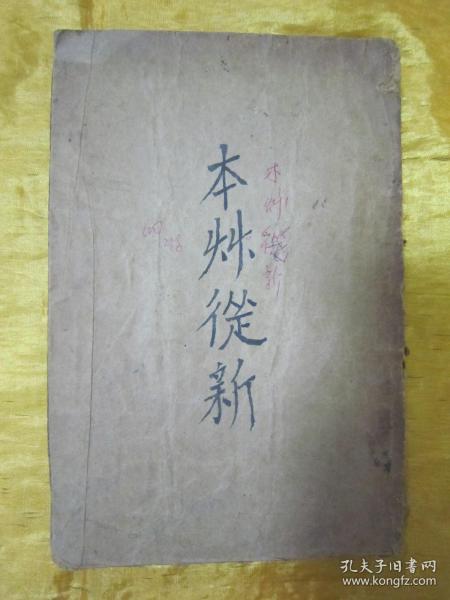 本艸從新
本艸從新
孔夫子旧书网
www.kongfz.com